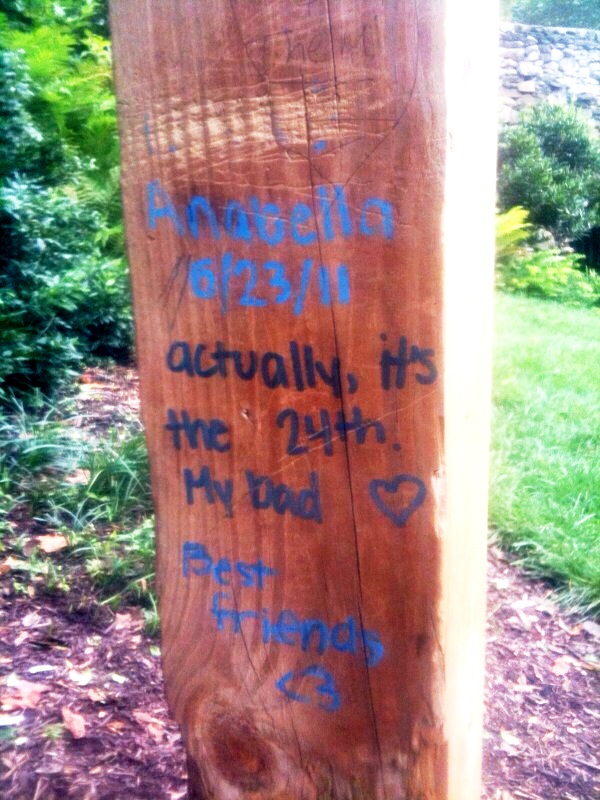 Anabella
6/23/11
actually, it's
the 24th.
My bad ♡
Best
friends
<3